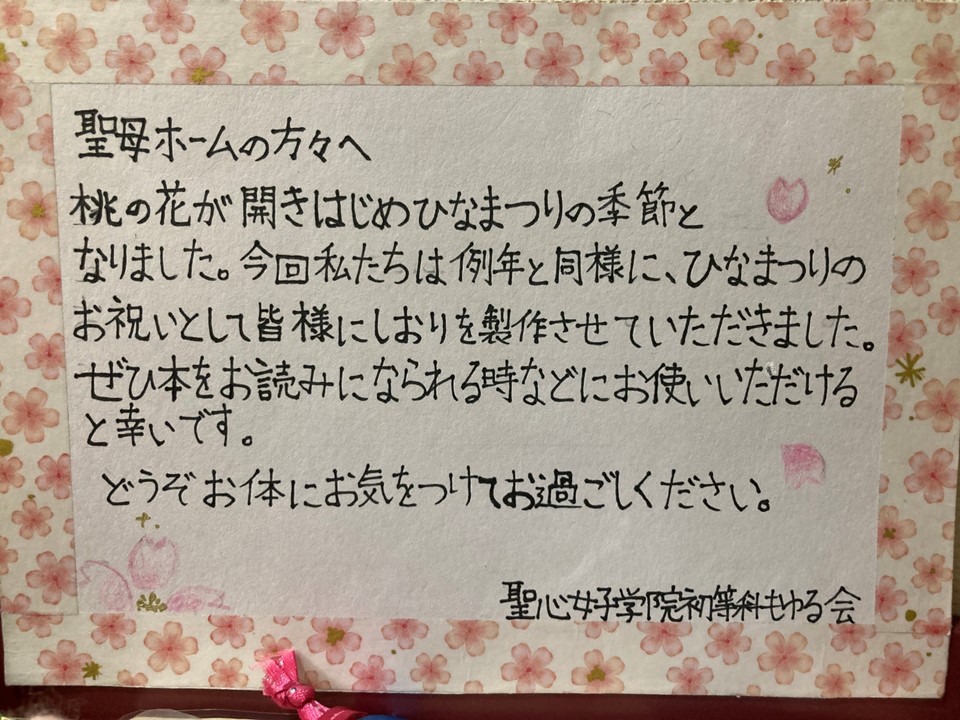 聖母ホームの方々へ
桃の花が開きはじめひなまつりの季節と
なりました。今回私たちは例年と同様に、ひなまつりの
お祝いとして皆様にしおりを製作させていただきました。
ぜひ本をお読みになられる時などにお使いいただける
と幸いです。
どうぞお体にお気をつけてお過ごしください。
聖心女子学院初等科もゆる会